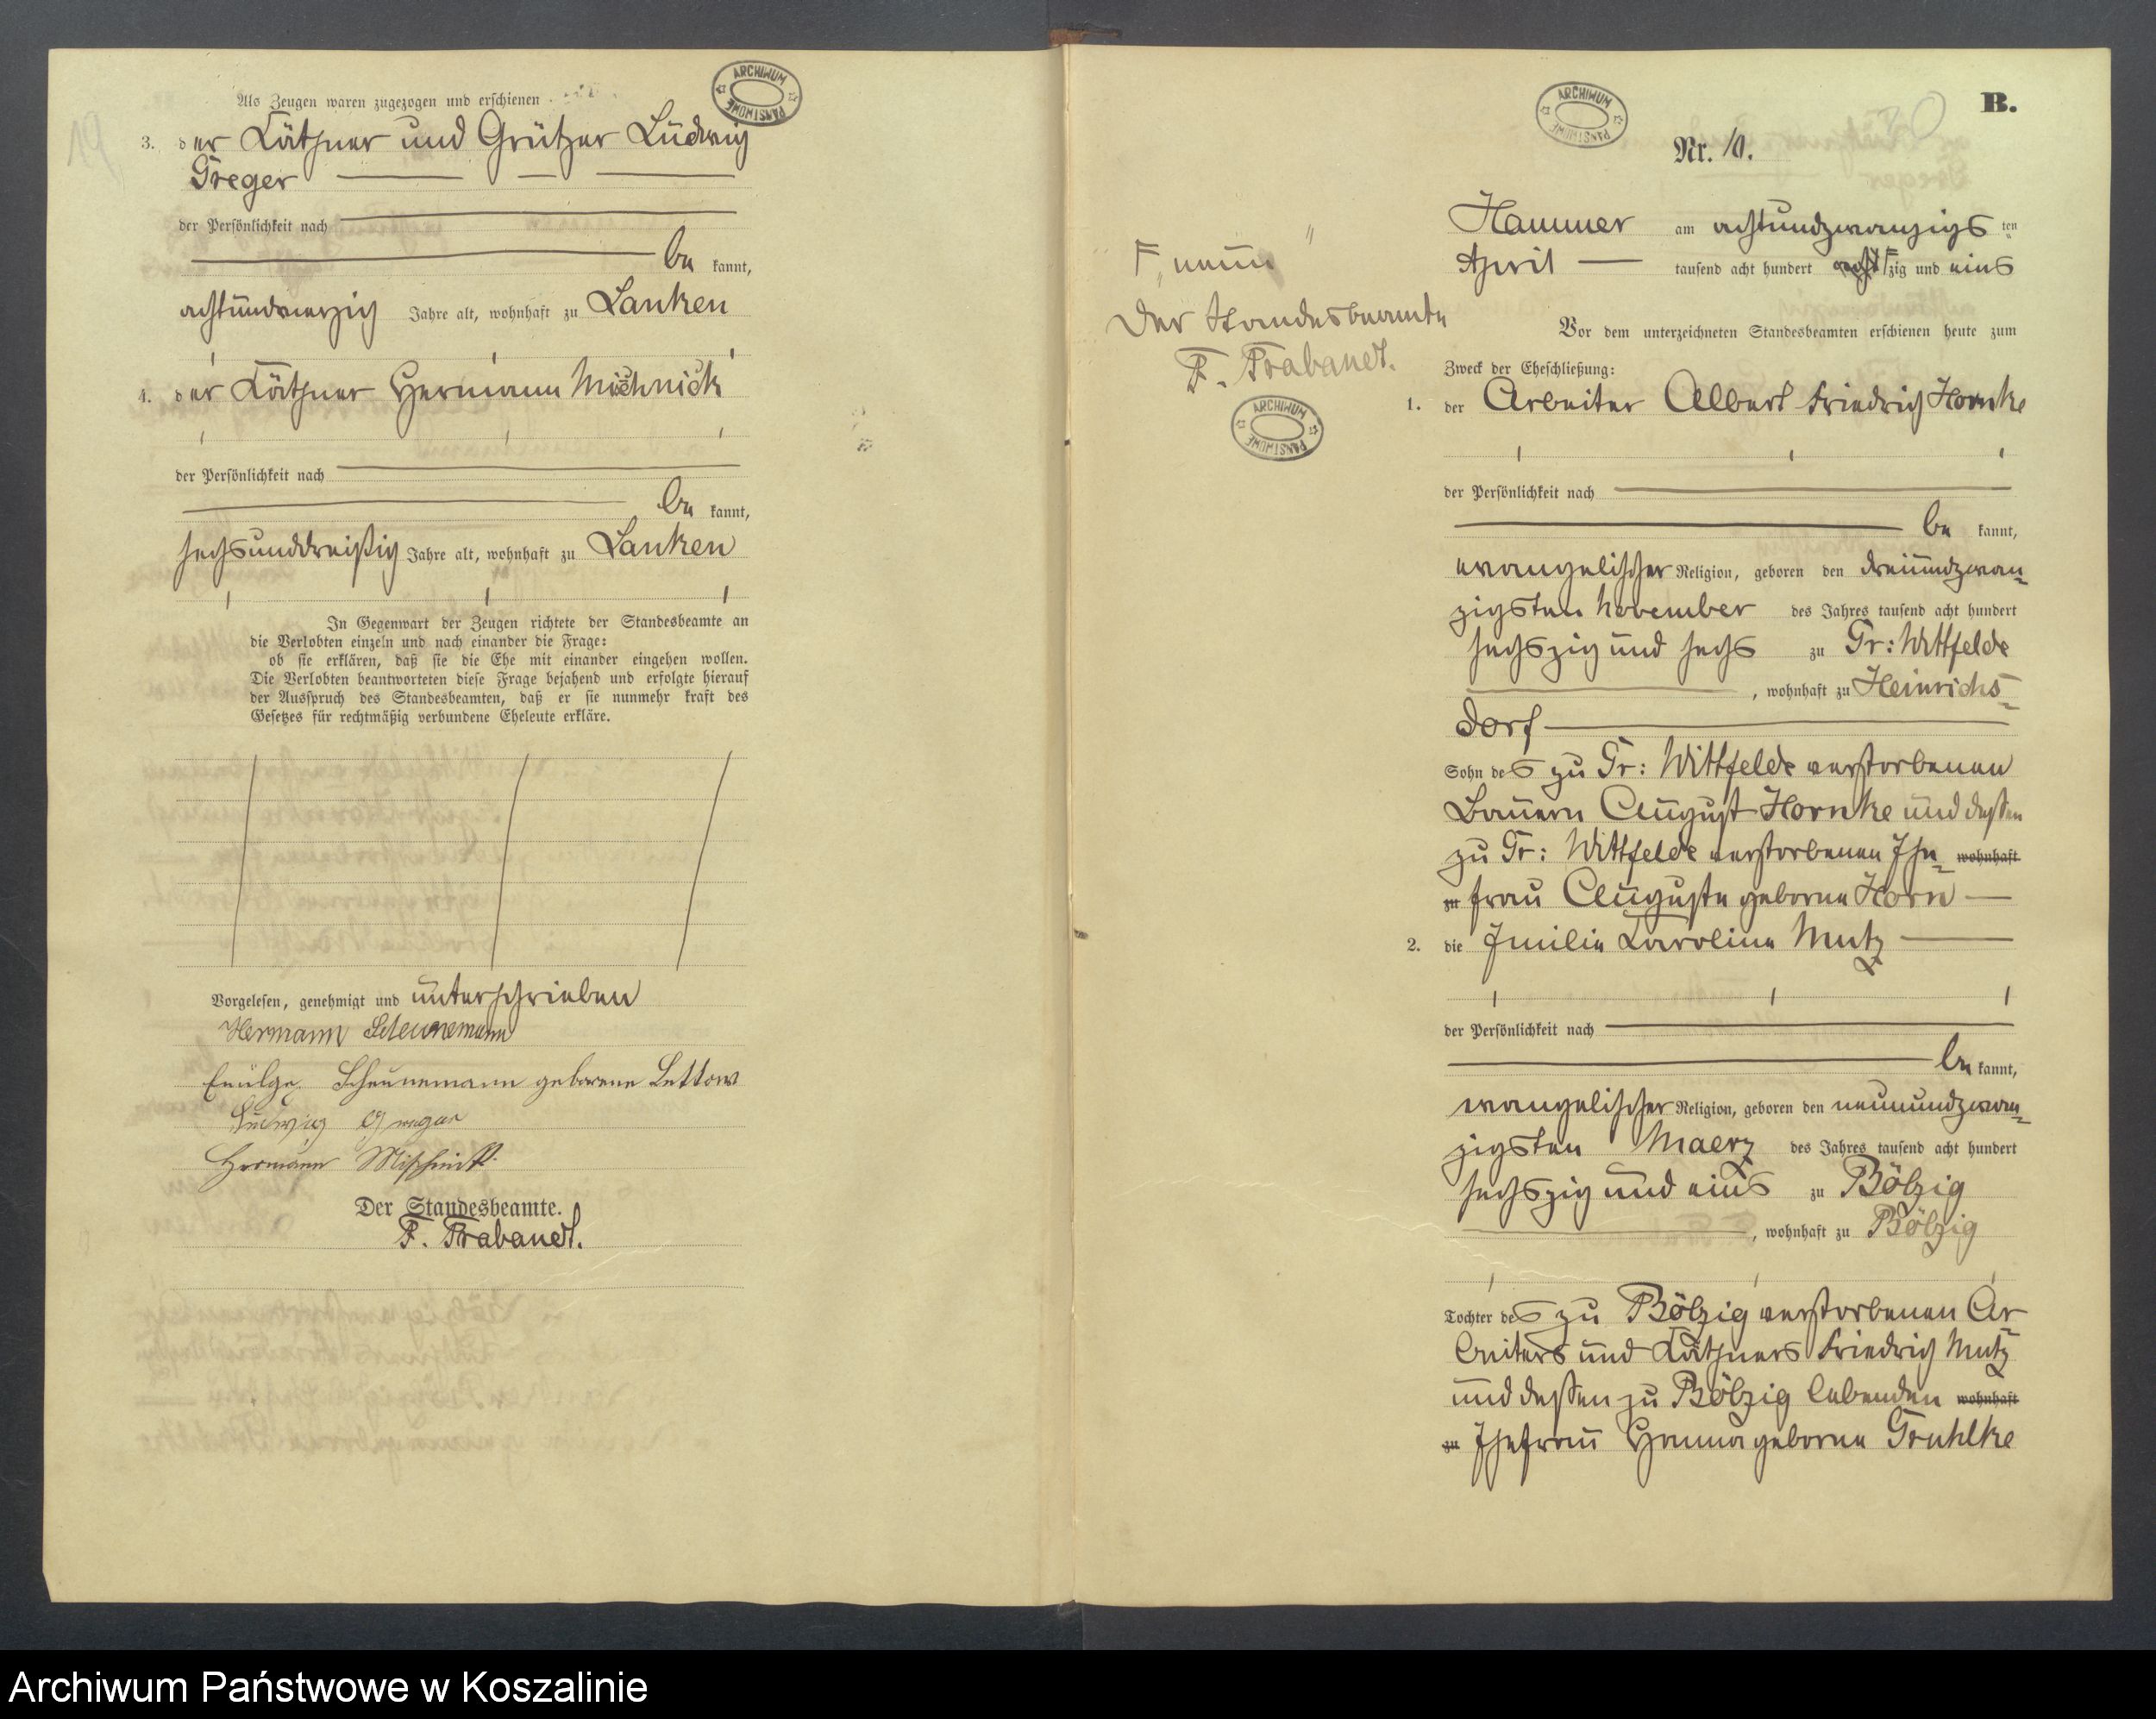 19
ARCHIWUM PAŃSTWOWE
Als Zeugen waren zugezogen und erschienen
3. der Käthner und Grützer Ludwig
Greger
der Persönlichkeit nach
be kannt,
achtundvierzig Jahre alt, wohnhaft zu Lanken
4. der Käthner Hermann Mischnick
der Persönlichkeit nach
be kannt,
sechsunddreißig Jahre alt, wohnhaft zu Lanken
In Gegenwart der Zeugen richtete der Standesbeamte an
die Verlobten einzeln und nach einander die Frage:
ob sie erklären, daß sie die Ehe mit einander eingehen wollen.
Die Verlobten beantworteten diese Frage bejahend und erfolgte hierauf
der Ausspruch des Standesbeamten, daß er sie nunmehr kraft des
Gesetzes für rechtmäßig verbundene Eheleute erkläre.
Vorgelesen, genehmigt und unterschrieben
Hermann Scheunemann
Scheunemann geborene Lettow
Ludwig Greger
Hermann Mischnick
Der Standesbeamte.
F. Trabandt.
B.
ARCHIWUM PAŃSTWOWE
Nr. 10.
Hammer am achtundzwanzigs ten
April tausend acht hundert zig und eins
F „neun"
Der Standesbeamte
F. Trabandt.
ARCHIWUM PAŃSTWOWE
Vor dem unterzeichneten Standesbeamten erschienen heute zum
Zweck der Eheschließung:
1. der Arbeiter Albert Friedrich Hornke
der Persönlichkeit nach
be kannt,
evangelischer Religion, geboren den dreiundzwan-
zigsten November des Jahres tausend acht hundert
sechszig und sechs zu Gr: Wittfelde
, wohnhaft zu Heinrichs-
dorf
Sohn des zu Gr: Wittfelde verstorbenen
Bauern August Hornke und dessen
zu Gr: Wittfelde verstorbenen Ehe- wohnhaft
zu frau Auguste geborne Horn
2. die Emilie Karoline Mutz
der Persönlichkeit nach
be kannt,
evangelischer Religion, geboren den neunundzwan-
zigsten Maerz des Jahres tausend acht hundert
sechszig und eins zu Bölzig
, wohnhaft zu Bölzig
Tochter des zu Bölzig verstorbenen Ar
beiters und Käthners Friedrich Mutz
und dessen zu Bölzig lebenden wohnhaft
zu Ehefrau Hanna geborne Gruhlke
Archiwum Państwowe w Koszalinie